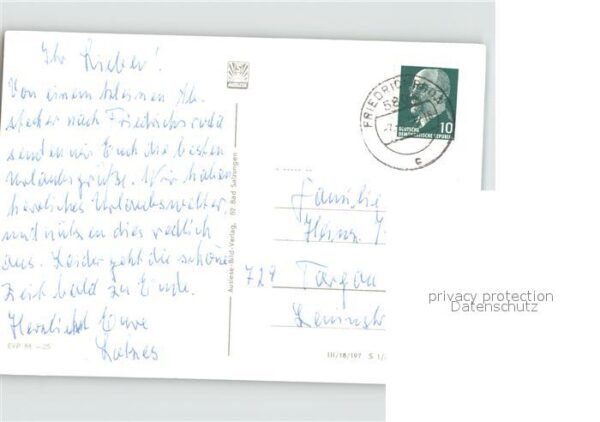 Ihr Lieben!
Von einem kleinen Ab-
stecher nach Friedrichroda
senden wir Euch die besten
Urlaubsgrüße. Wir haben
herrliches Urlaubswetter
und nützen dies redlich
aus. Leider geht die schöne
Zeit bald zu Ende.
Herzlichst Eure
EVP M -.25
Auslese-Bild-Verlag, 62 Bad Salzungen
FRIEDRICHRODA
58
c
DEUTSCHE
DEMOKRATISCHE REPUBLIK
10
Familie
Heinz
729 Torgau
Leninstr
III/18/197 S 1/
privacy protection
Datenschutz